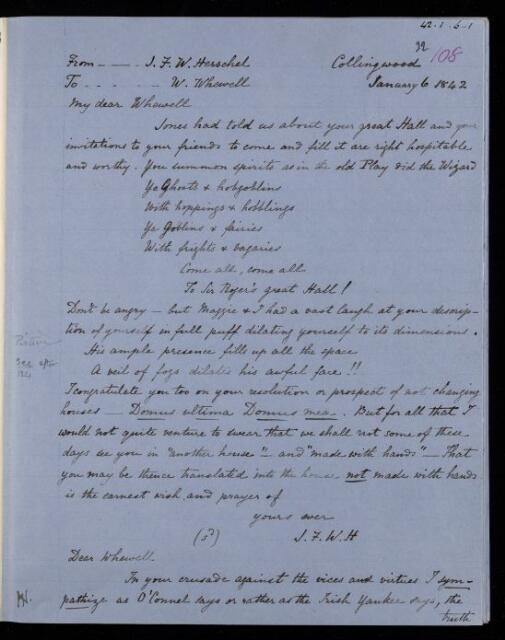 42-1-6-1
92 108
From - - - J. F. W. Herschel Collingwood
To - - - - - W. Whewell January 6 1842
My dear Whewell
Jones had told us about your great Hall and your
invitations to your friends to come and fill it are right hospitable
and worthy. You summon spirits as in the old Play did the Wizard
Ye Ghosts & hobgoblins
With hoppings & hobblings
Ye Goblins & fairies
With frights & vagaries
Come all, come all
To Sir Roger's great Hall!
Don't be angry — but Maggie & I had a vast laugh at your descrip-
tion of yourself in full puff dilating yourself to its dimensions.
His ample presence fills up all the space
A veil of fogs dilates his awful face!!
I congratulate you too on your resolution or prospect of not changing
houses — Domus ultima Domus mea. But for all that I
would not quite venture to swear that we shall not some of these
days see you in "another house" — and "made with hands" — That
you may be thence translated into the house not made with hands
is the earnest wish and prayer of
yours ever
(sd) J. F. W. H
Dear Whewell
In your crusade against the vices and virtues I sym-
pathize as O'Connel says or rather as the Irish Yankee says, the
truth